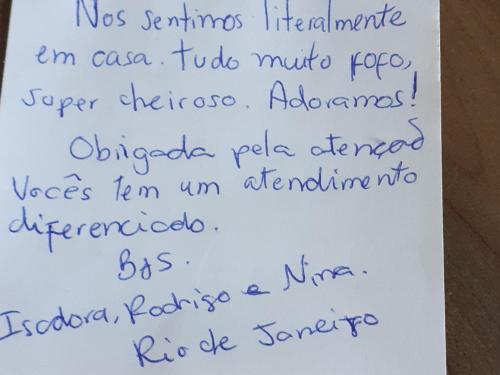 Nos sentimos literalmente
em casa. Tudo muito fofo,
super cheiroso. Adoramos!
Obrigada pela atenção
Vocês tem um atendimento
diferenciado.
BJS.
Isadora, Rodrigo e Nina.
Rio de Janeiro